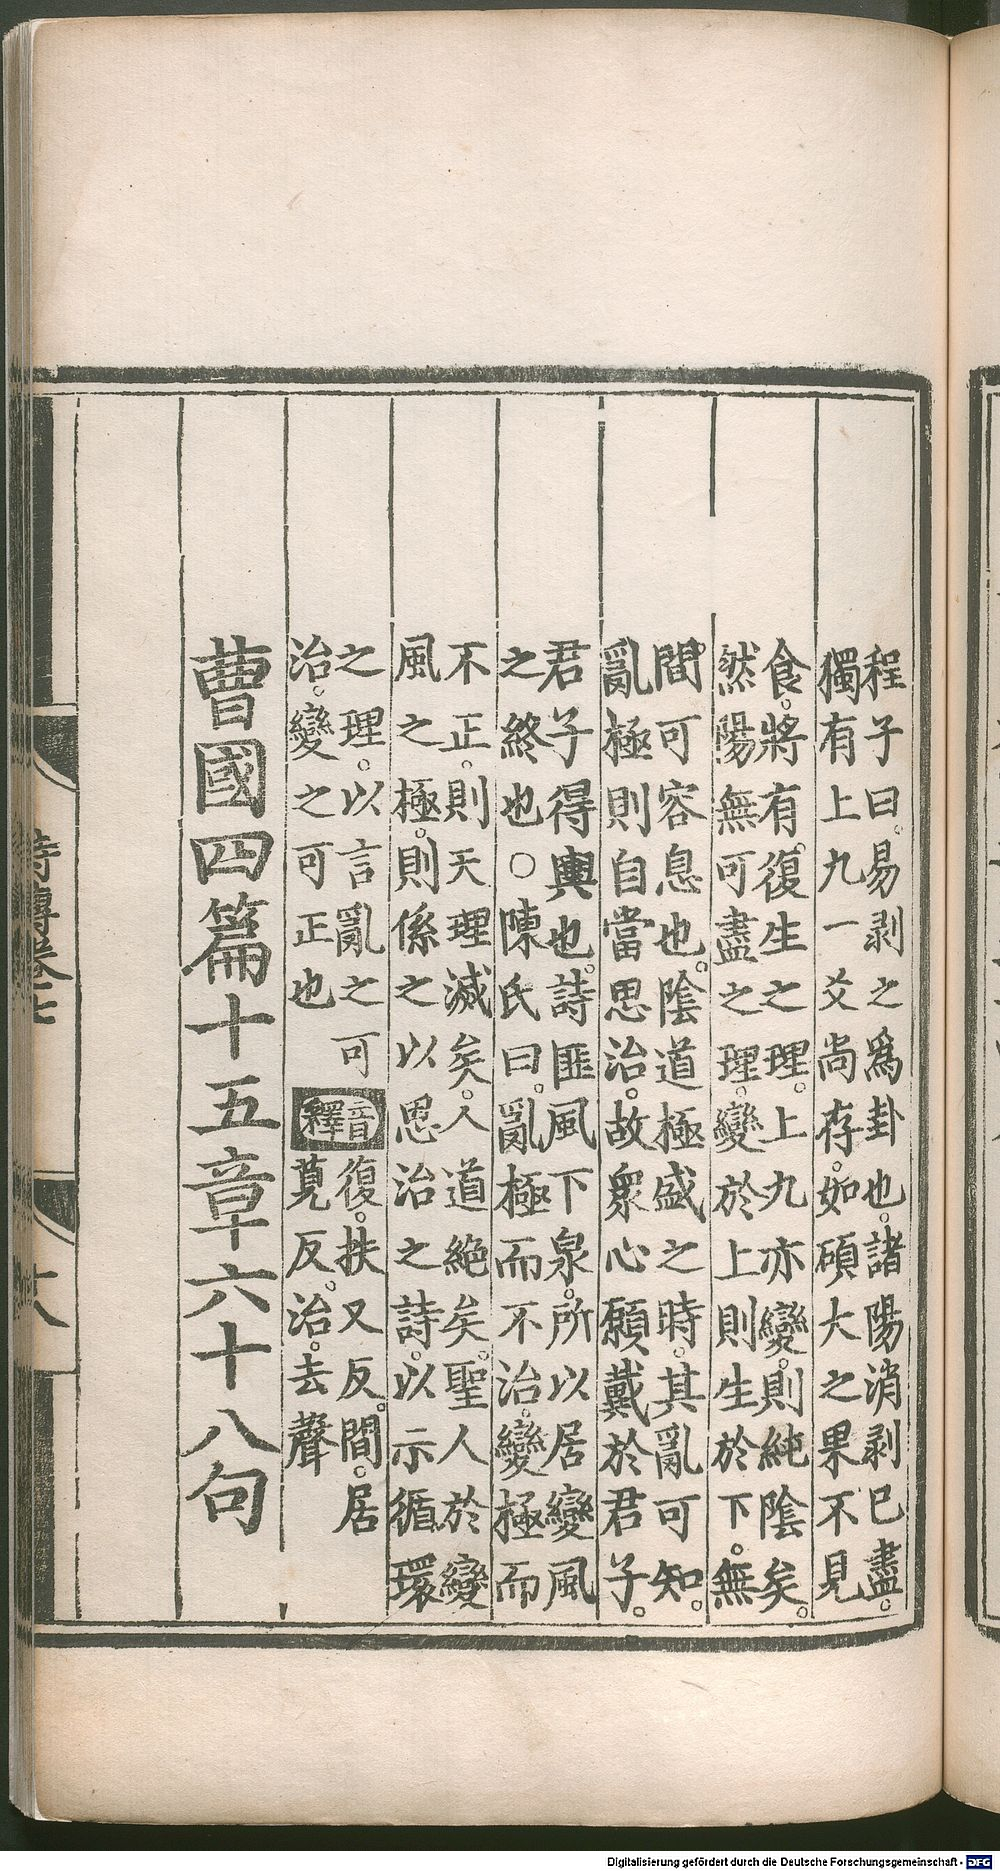 程子曰易剥之爲卦也諸陽消剥已盡
獨有上九一爻尚存如碩大之果不見
食將有復生之理上九亦變則純陰矣
然陽無可盡之理變於上則生於下無
間可容息也陰道極盛之時其亂可知
亂極則自當思治故衆心願戴於君子
君子得輿也詩匪風下泉所以居變風
之終也○陳氏曰亂極而不治變極而
不正則天理滅矣人道絶矣聖人於變
風之極則係之以思治之詩以示循環
之理以言亂之可
治變之可正也
音釋
復扶又反間居
莧反治去聲
曹國四篇十五章六十八句
詩傳卷七
十八
Digitalisierung gefördert durch die Deutsche Forschungsgemeinschaft - DFG